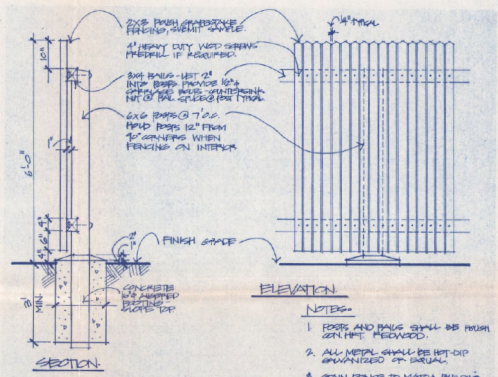 2x3 ROUGH GRAPESTAKE
FENCING, SUBMIT SAMPLE.
4" HEAVY DUTY WOOD SCREWS
PREDRILL IF REQUIRED.
3x4 RAILS - LET 2"
INTO POSTS PROVIDE
CARRIAGE BOLTS - COUNTERSINK
NUT @ RAIL SPLICE @ POST TYPICAL
6x6 POSTS @ 7' O.C.
HOLD POSTS 12" FROM
90° CORNERS WHEN
FENCING ON INTERIOR
TYPICAL
10"
6'-0"
4"
6"
4"
3'
MIN.
FINISH GRADE
CONCRETE
FOOTING
SLOPE TOP
SECTION
ELEVATION
NOTES:
1. POSTS AND RAILS SHALL BE ROUGH
CON. HRT. REDWOOD.
2. ALL METAL SHALL BE HOT-DIP
GALVANIZED OR EQUAL.